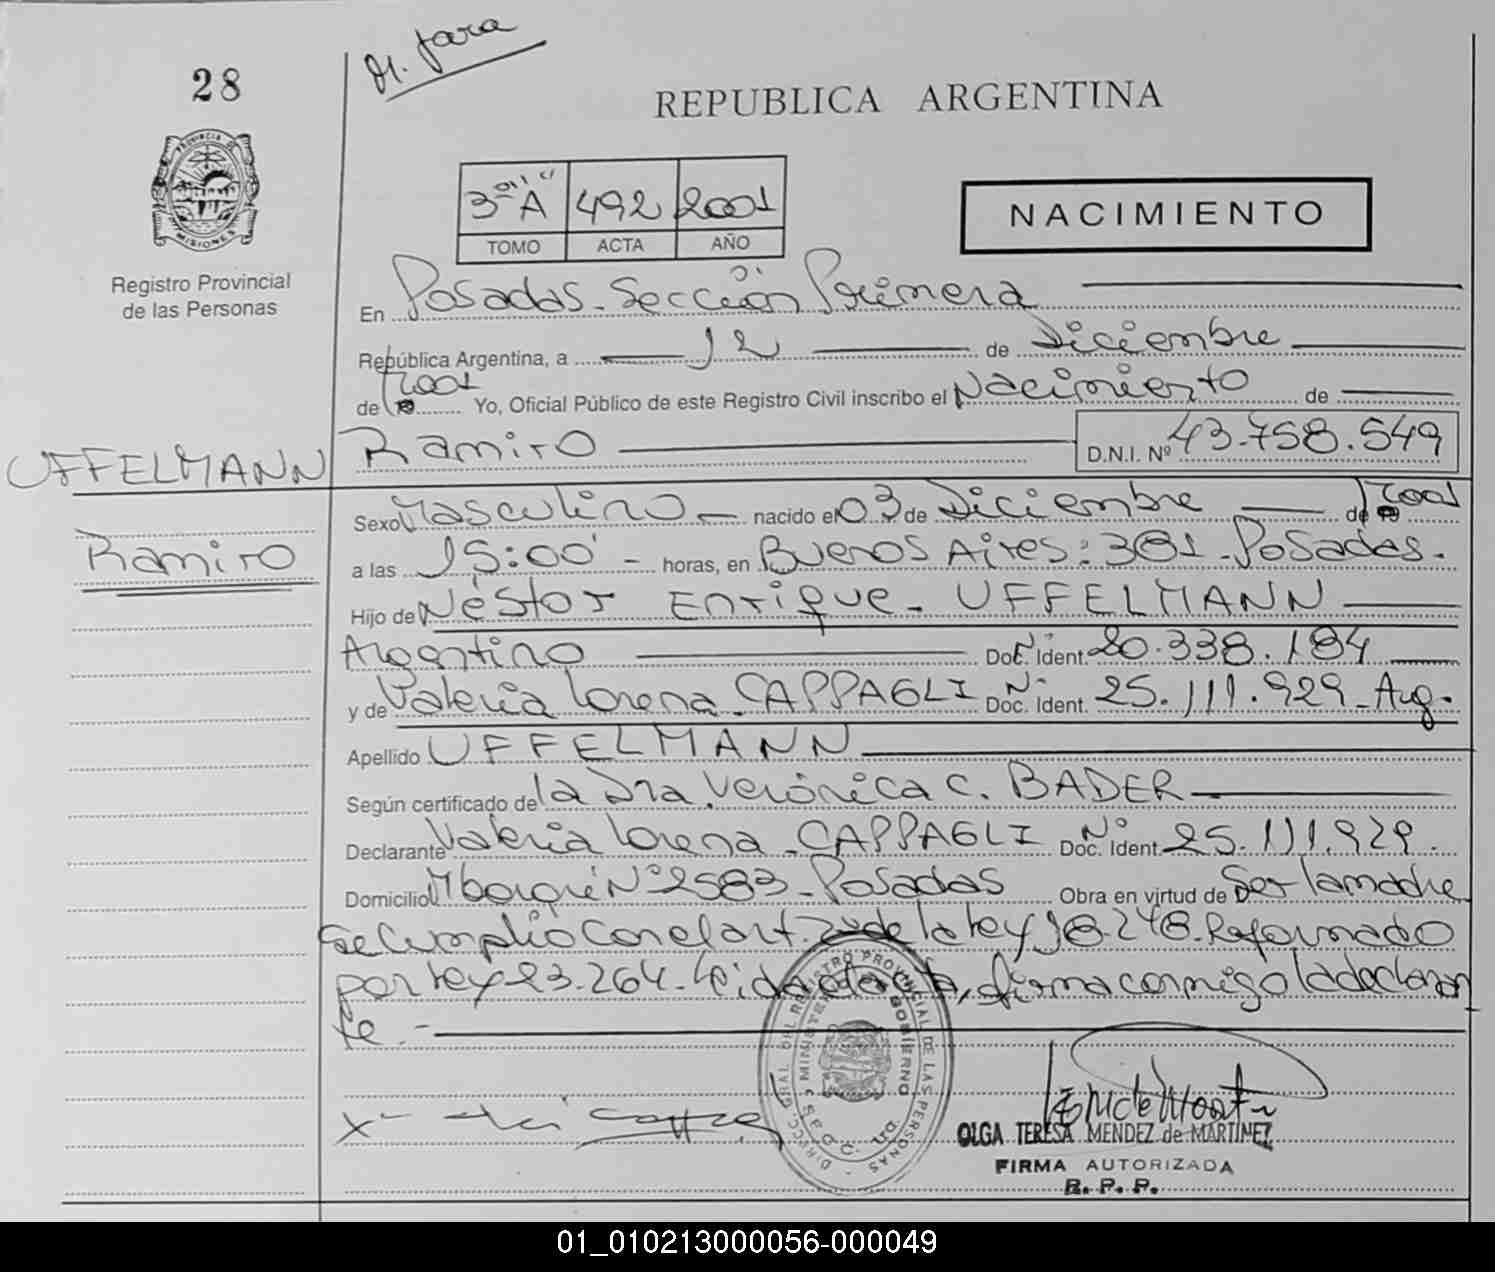 28
M. Jara
REPUBLICA ARGENTINA
PROVINCIA DE MISIONES
Registro Provincial
de las Personas
3º "A" 492 2001
TOMO ACTA AÑO
NACIMIENTO
En Posadas - Sección Primera
República Argentina, a 12 de Diciembre
de 2001 Yo, Oficial Público de este Registro Civil inscribo el Nacimiento de
UFFELMANN Ramiro D.N.I. Nº 43.758.549
Sexo Masculino - nacido el 03 de Diciembre de 2001
Ramiro
a las 15:00 - horas, en Buenos Aires: 381 - Posadas.
Hijo de Néstor Enrique - UFFELMANN
Argentino Doc. Ident. Nº 20.338.184
y de Valeria Lorena - CAPPAGLI Doc. Ident. Nº 25.111.929 - Arg.
Apellido UFFELMANN
Según certificado de la Dra. Verónica C. BADER
Declarante Valeria Lorena - CAPPAGLI Doc. Ident. Nº 25.111.929.
Domicilio Nº 2583 - Posadas Obra en virtud de Ser la madre
Se Cumplió Con el art. 2º de la ley 18.248. Reformado
por ley 23.264. Leida el acta, firma conmigo la declaran
te. -
DIRECC. GRAL. DEL REGISTRO PROVINCIAL DE LAS PERSONAS
MINISTERIO GOBIERNO
OLGA TERESA MENDEZ de MARTINEZ
FIRMA AUTORIZADA
R. P. P.
01_010213000056-000049